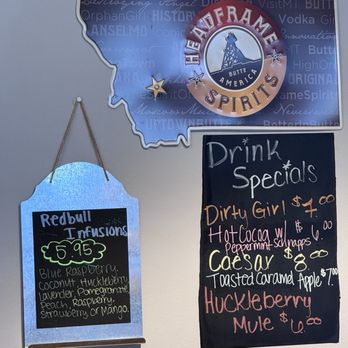 OrphanGirl HISTORIC
ANSELMO
Vodka
Girl
Innovation
HEADFRAME
BUTTE
AMERICA
SPIRITS
ORIGINAL
UPTOWNBUTTE
Drink
Specials
Dirty Girl $7.00
Hot Cocoa w/ $6.00
Peppermint schnapps
Caesar $8.00
Toasted Caramel Apple $7.00
Huckleberry
Mule $6.00
Redbull
Infusions
5.95
Blue Raspberry,
Coconut Huckleberry
Lavender Pomegranate
Peach, Raspberry,
Strawberry or Mango.